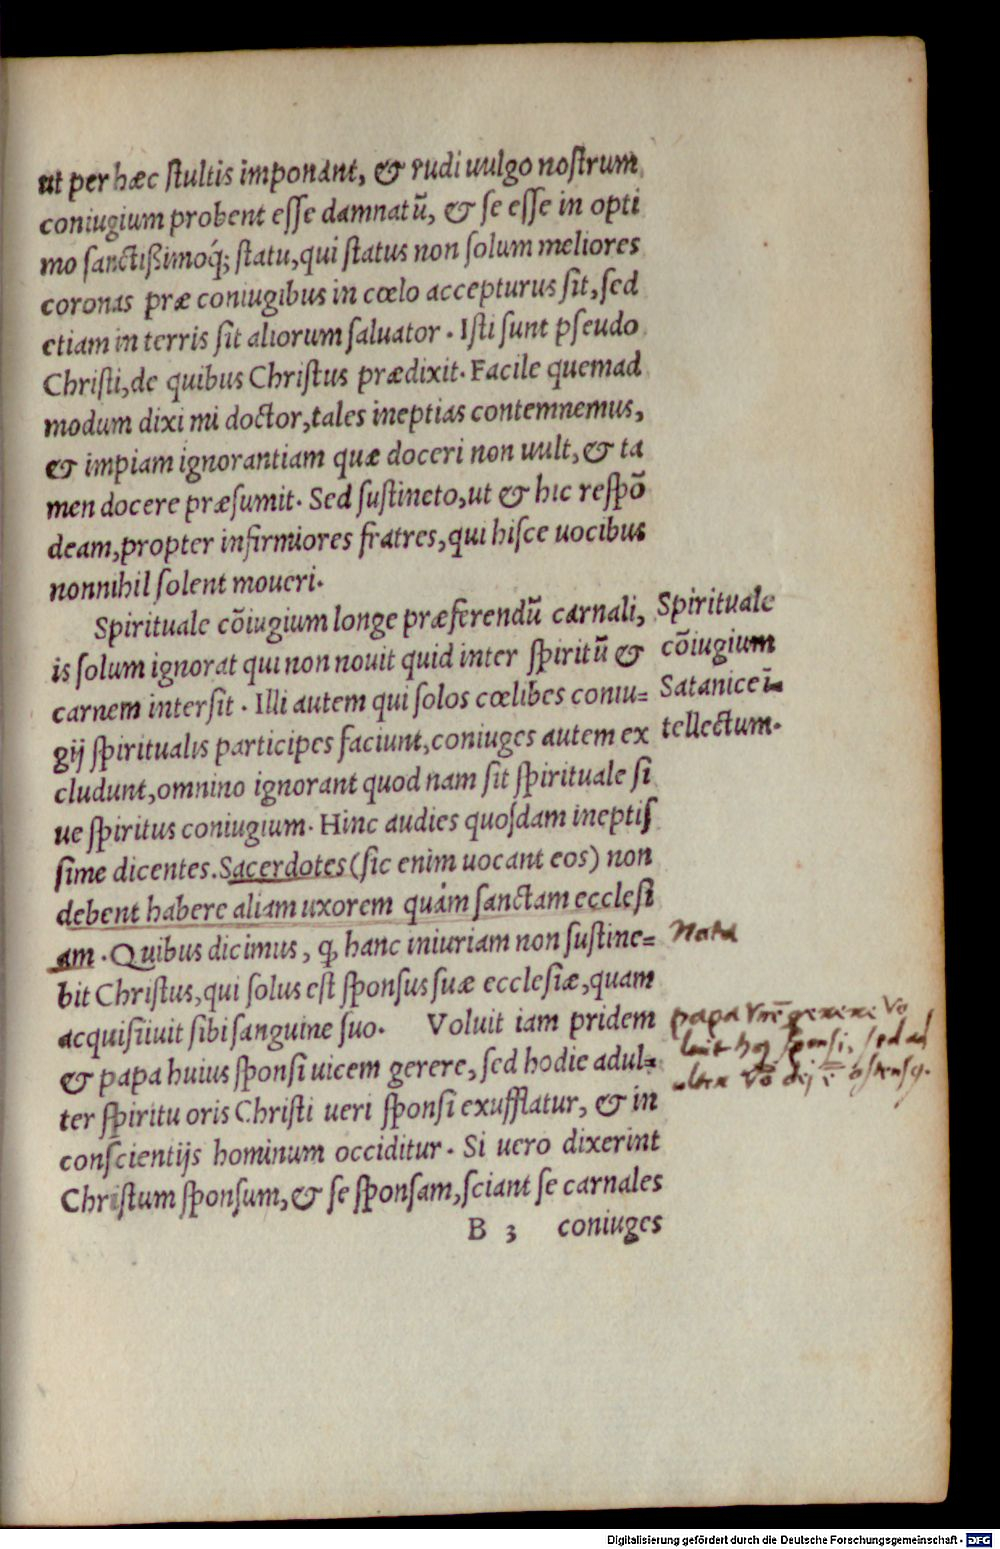 ut per hæc ſtultis imponant, & rudi uulgo noſtrum
coniugium probent eſſe damnatū, & ſe eſſe in opti
mo ſanctißimoq́; ſtatu, qui ſtatus non ſolum meliores
coronas præ coniugibus in cœlo accepturus ſit, ſed
etiam in terris ſit aliorum ſaluator. Iſti ſunt pſeudo
Chriſti, de quibus Chriſtus prædixit. Facile quemad
modum dixi mi doctor, tales ineptias contemnemus,
& impiam ignorantiam quæ doceri non uult, & ta
men docere præſumit. Sed ſuſtineto, ut & hic reſpō
deam, propter infirmiores fratres, qui hiſce uocibus
nonnihil ſolent moueri.
Spirituale cōiugium longe præferendū carnali,
is ſolum ignorat qui non nouit quid inter ſpiritū &
carnem interſit. Illi autem qui ſolos cœlibes coniu=
gij ſpiritualis participes faciunt, coniuges autem ex
cludunt, omnino ignorant quod nam ſit ſpirituale ſi
ue ſpiritus coniugium. Hinc audies quoſdam ineptiſ
ſime dicentes. Sacerdotes (ſic enim uocant eos) non
debent habere aliam uxorem quàm ſanctam eccleſi
am. Quibus dicimus, ꝙ hanc iniuriam non ſuſtine=
bit Chriſtus, qui ſolus eſt ſponſus ſuæ eccleſiæ, quam
acquiſiiuit ſibi ſanguine ſuo. Voluit iam pridem
& papa huius ſponſi uicem gerere, ſed hodie adul=
ter ſpiritu oris Chriſti ueri ſponſi exufflatur, & in
conſcientijs hominum occiditur. Si uero dixerint
Chriſtum ſponſum, & ſe ſponſam, ſciant ſe carnales
B 3 coniuges
Spirituale
cōiugium
Satanice ī
tellectum.
Nota
papa gerere vo
luit ſponſi, ſed ad
Digitalisierung gefördert durch die Deutsche Forschungsgemeinschaft - DFG